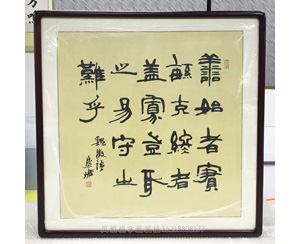 善始者實
繁克終者
蓋寡豈取
之易守之
難乎
魏徵語